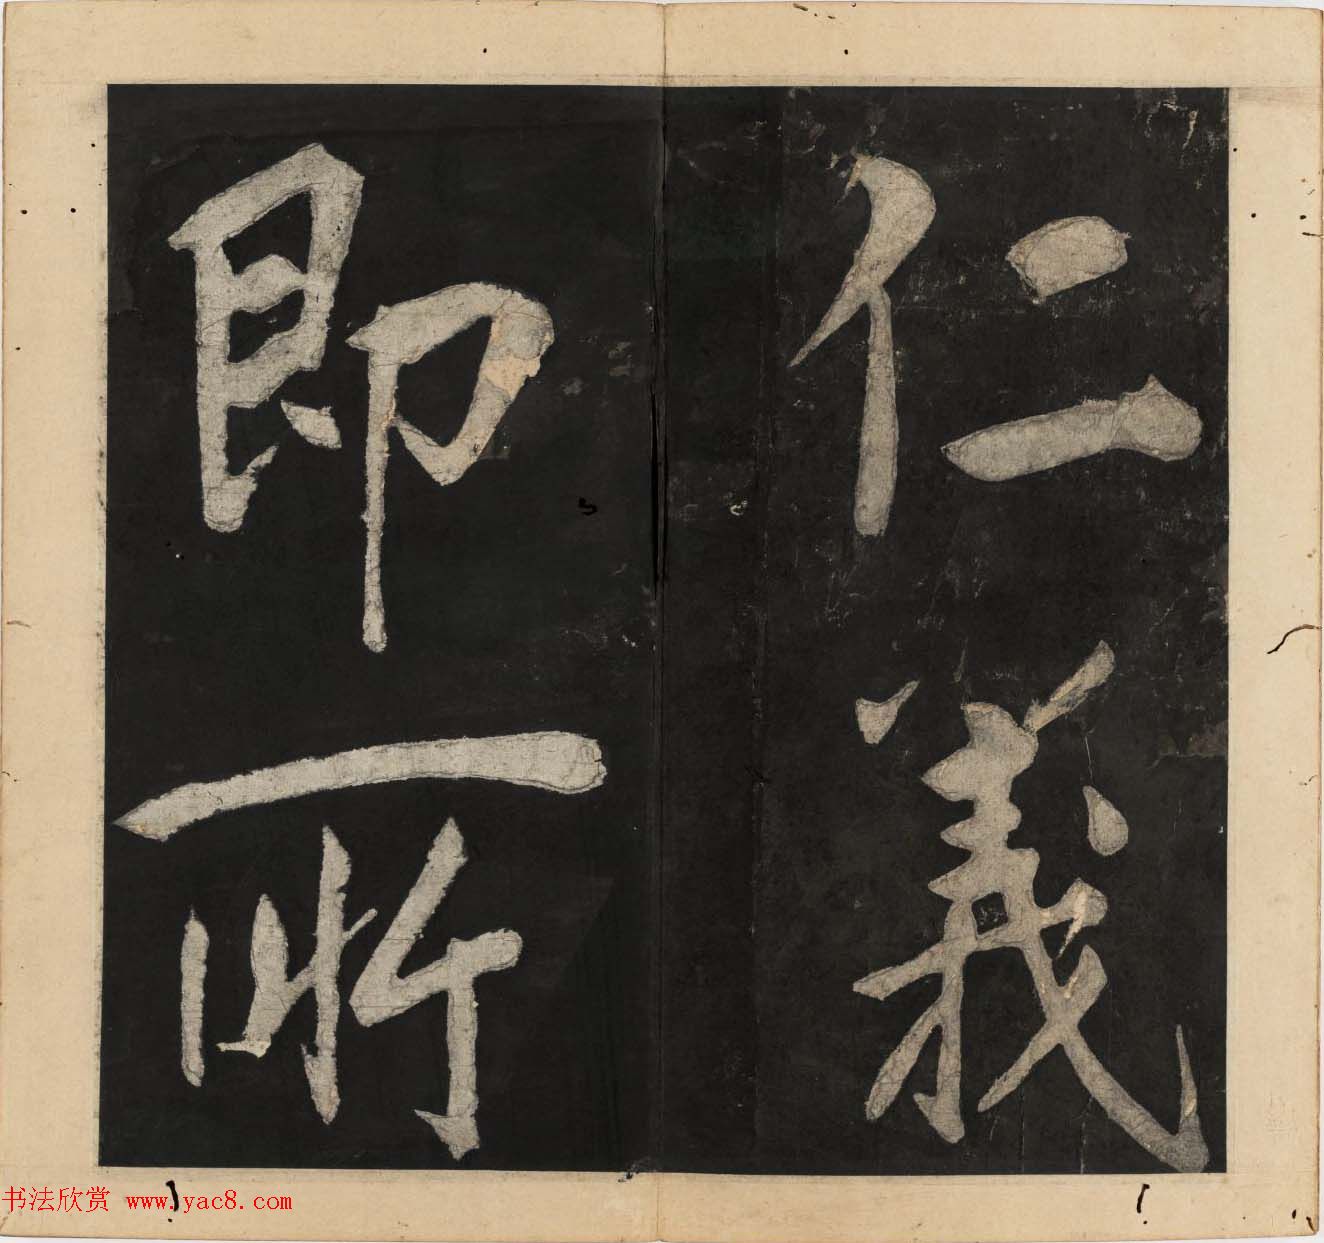 仁義
即所
书法欣赏 www.yac8.com